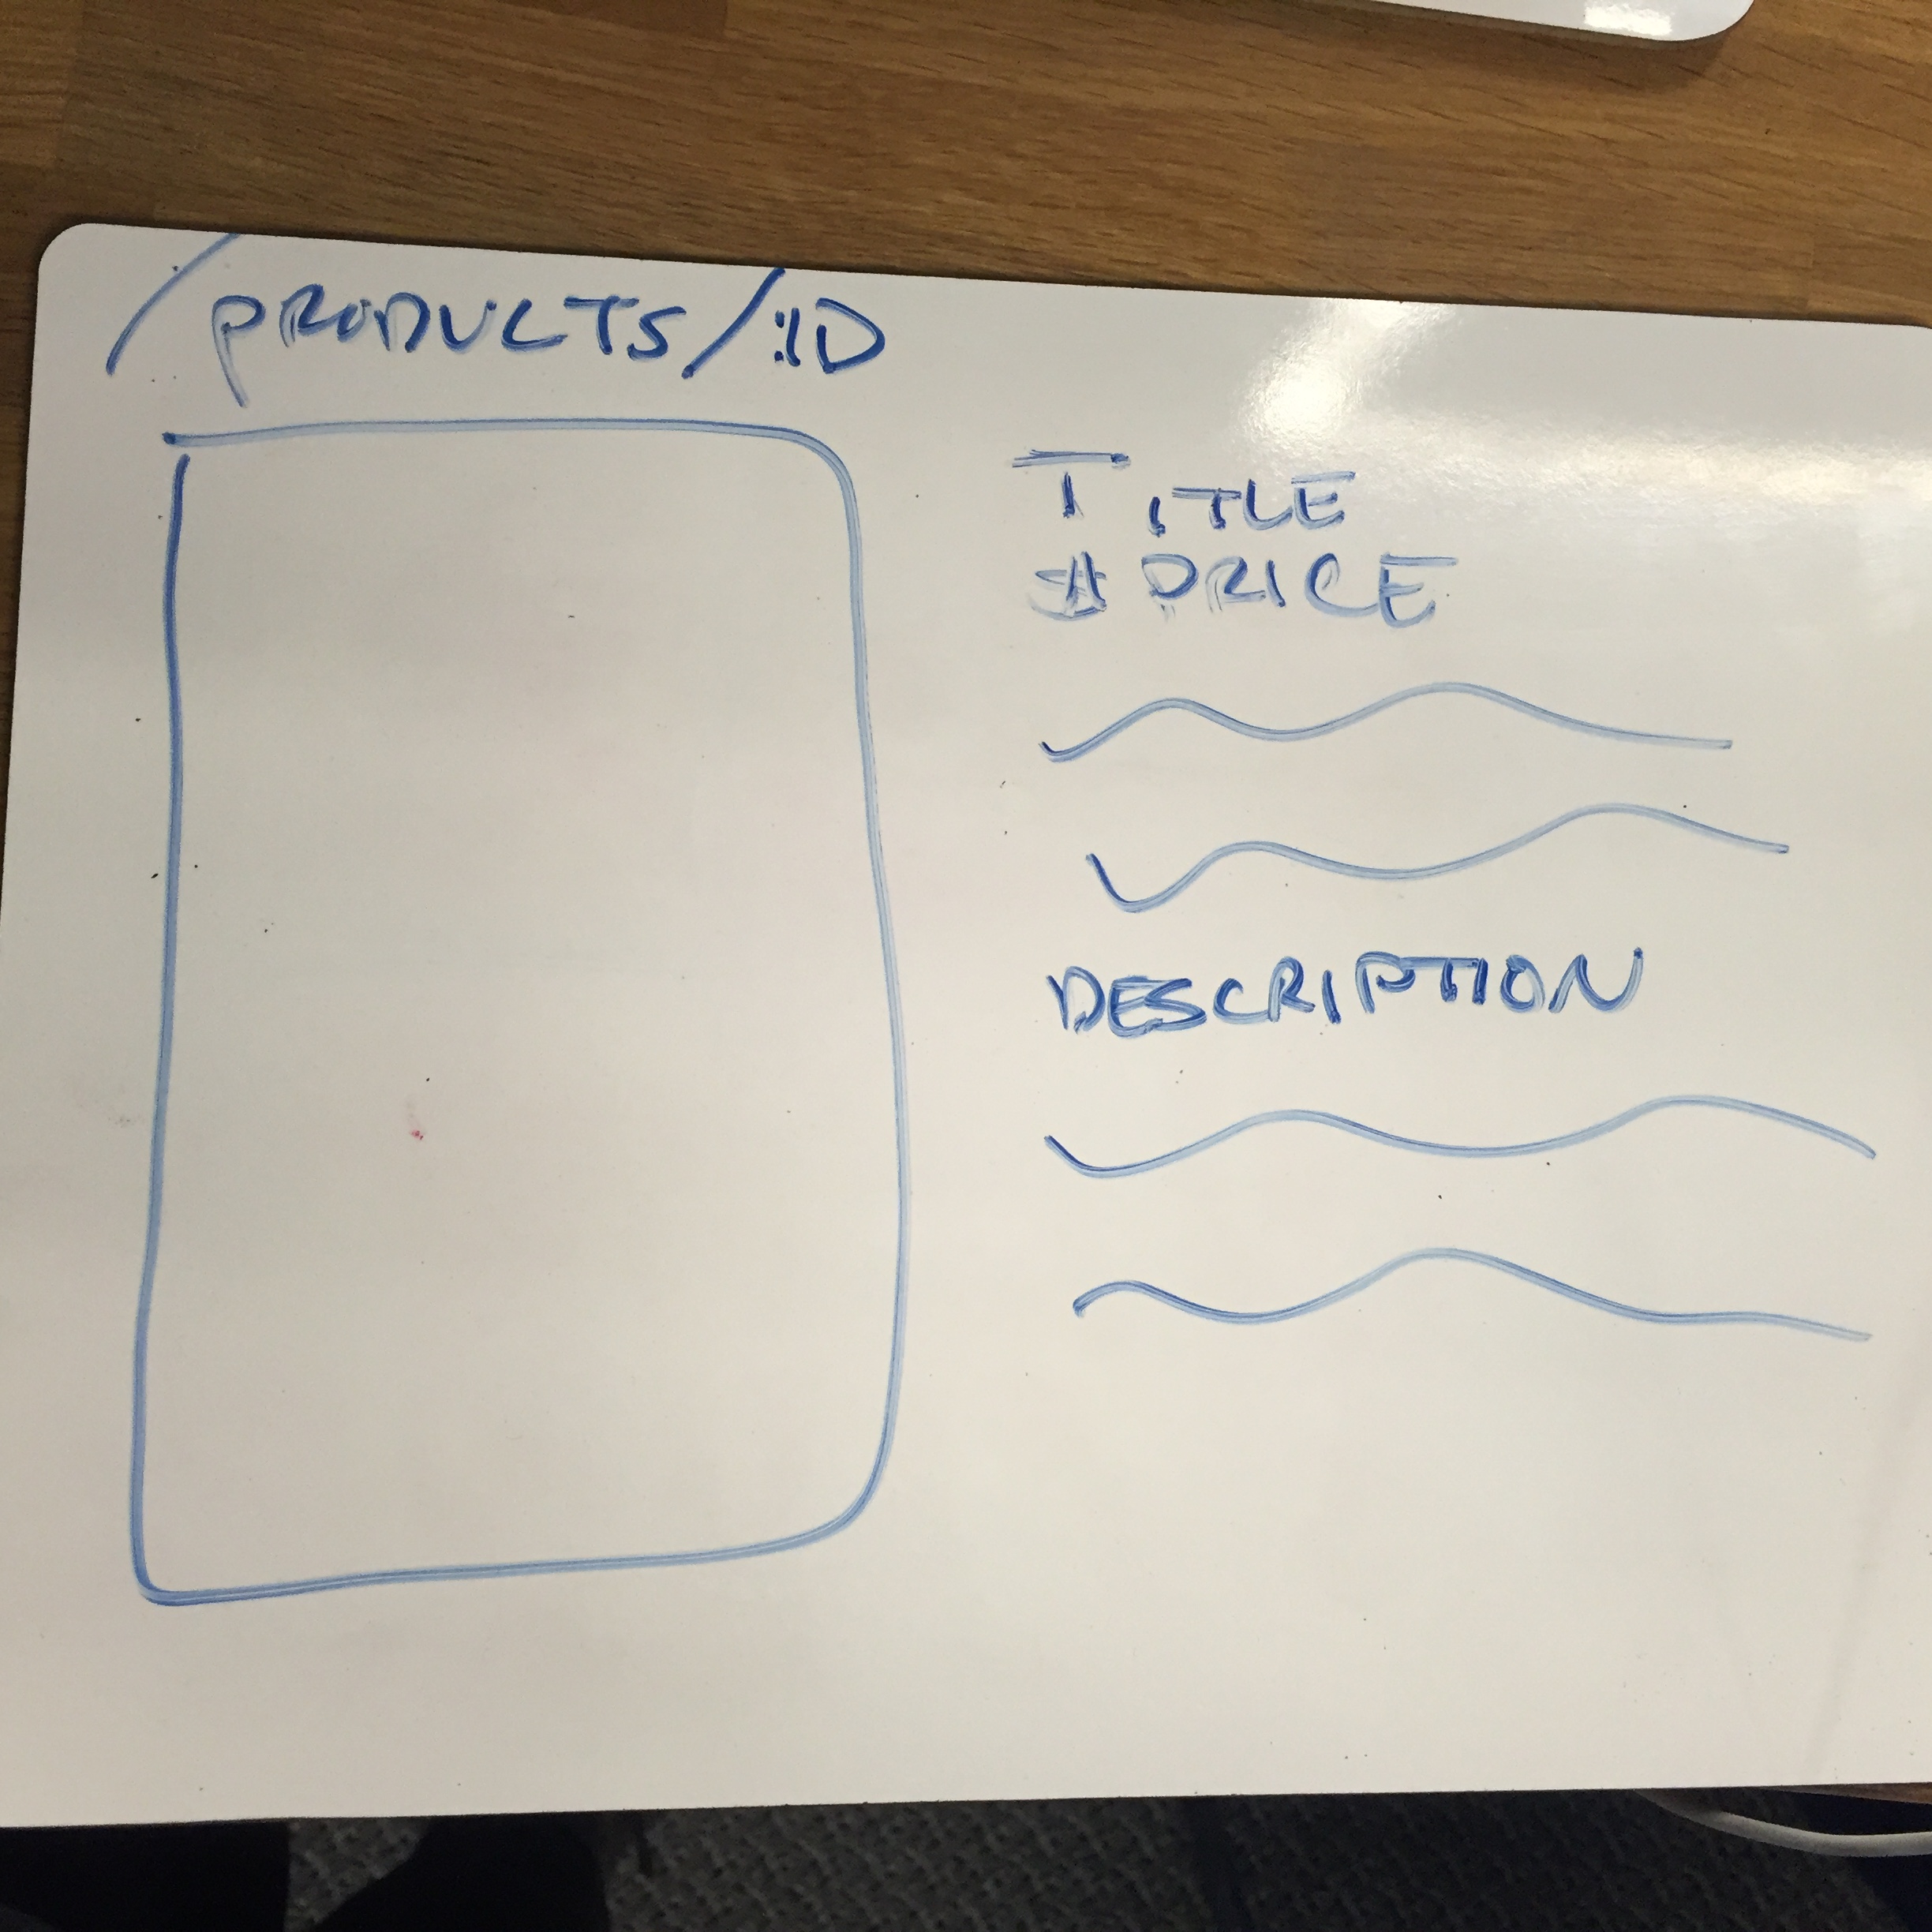 /PRODUCTS/:ID
TITLE
$ PRICE
DESCRIPTION